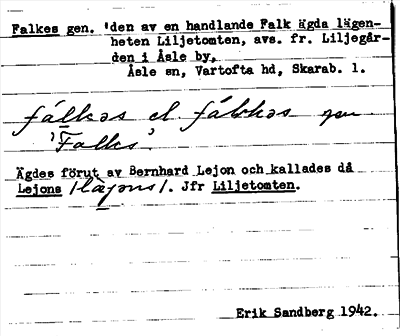 Falkes gen. 'den av en handlande Falk ägda lägen-
heten Liljetomten, avs. fr. Liljegår-
den i Åsle by,
Åsle sn, Vartofta hd, Skarab. l.
fálkəs el. fálkəs gen
'Falks'.
Ägdes förut av Bernhard Lejon och kallades då
Lejons /läjons/. Jfr Liljetomten.
Erik Sandberg 1942.